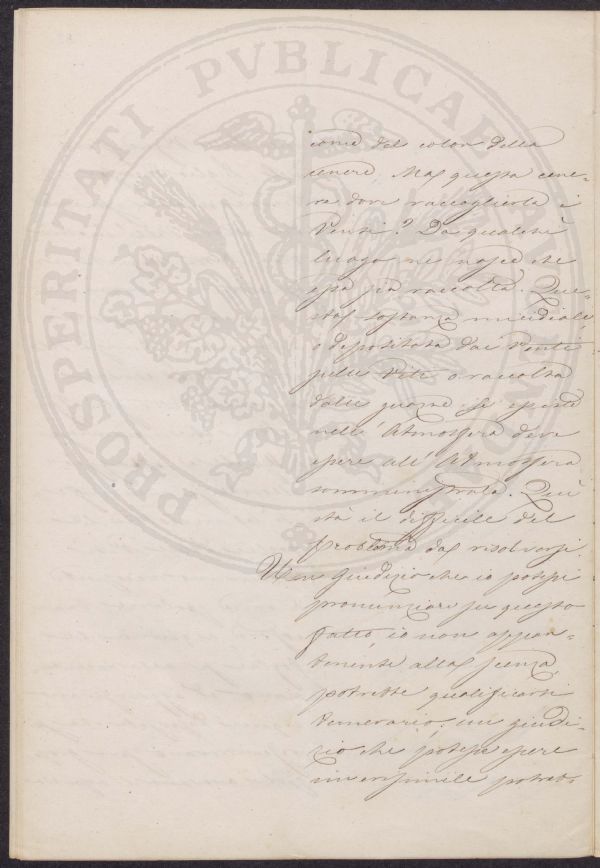 PROSPERITATI PVBLICAE AVGENDAE
come del color della
cenere. Ma questa cene-
re dove raccoglierla i
Venti? Da qualche
luogo ne nasce che
essa sia raccolta. Que-
sta sostanza micidiale
o depositata dai Venti
sulle Viti o raccolta
dalle quando si esiste
nell'Atmosfera deve
essere all'Atmosfera
somministrata. Quì
stà il difficile del
problema da risolversi.
Un Giudizio che io potessi
pronunziare su questo
fatto io non appar-
tenente alla scienza
potrebbe qualificarsi
temerario: un giudi-
zio che potesse essere
inverosimile potreb